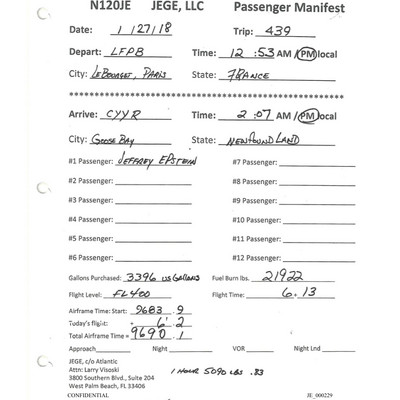 N120JE JEGE, LLC Passenger Manifest
Date: 1/27/18 Trip: 439
Depart: LFPB Time: 12:53 AM / PM local
City: LeBourget, Paris State: France
Arrive: CYYR Time: 2:07 AM / PM local
City: Goose Bay State: Newfoundland
#1 Passenger: Jeffrey Epstein #7 Passenger:
#2 Passenger: #8 Passenger:
#3 Passenger: #9 Passenger:
#4 Passenger: #10 Passenger:
#5 Passenger: #11 Passenger:
#6 Passenger: #12 Passenger:
Gallons Purchased: 3396 US Gallons Fuel Burn lbs. 21922
Flight Level: FL400 Flight Time: 6.13
Airframe Time: Start: 9683.9
Today's flight: 6.2
Total Airframe Time = 9690.1
Approach Night VOR Night Lnd
JEGE, c/o Atlantic
Attn: Larry Visoski 1 Hour 5090 lbs .83
3800 Southern Blvd., Suite 204
West Palm Beach, FL 33406
CONFIDENTIAL JE_000229